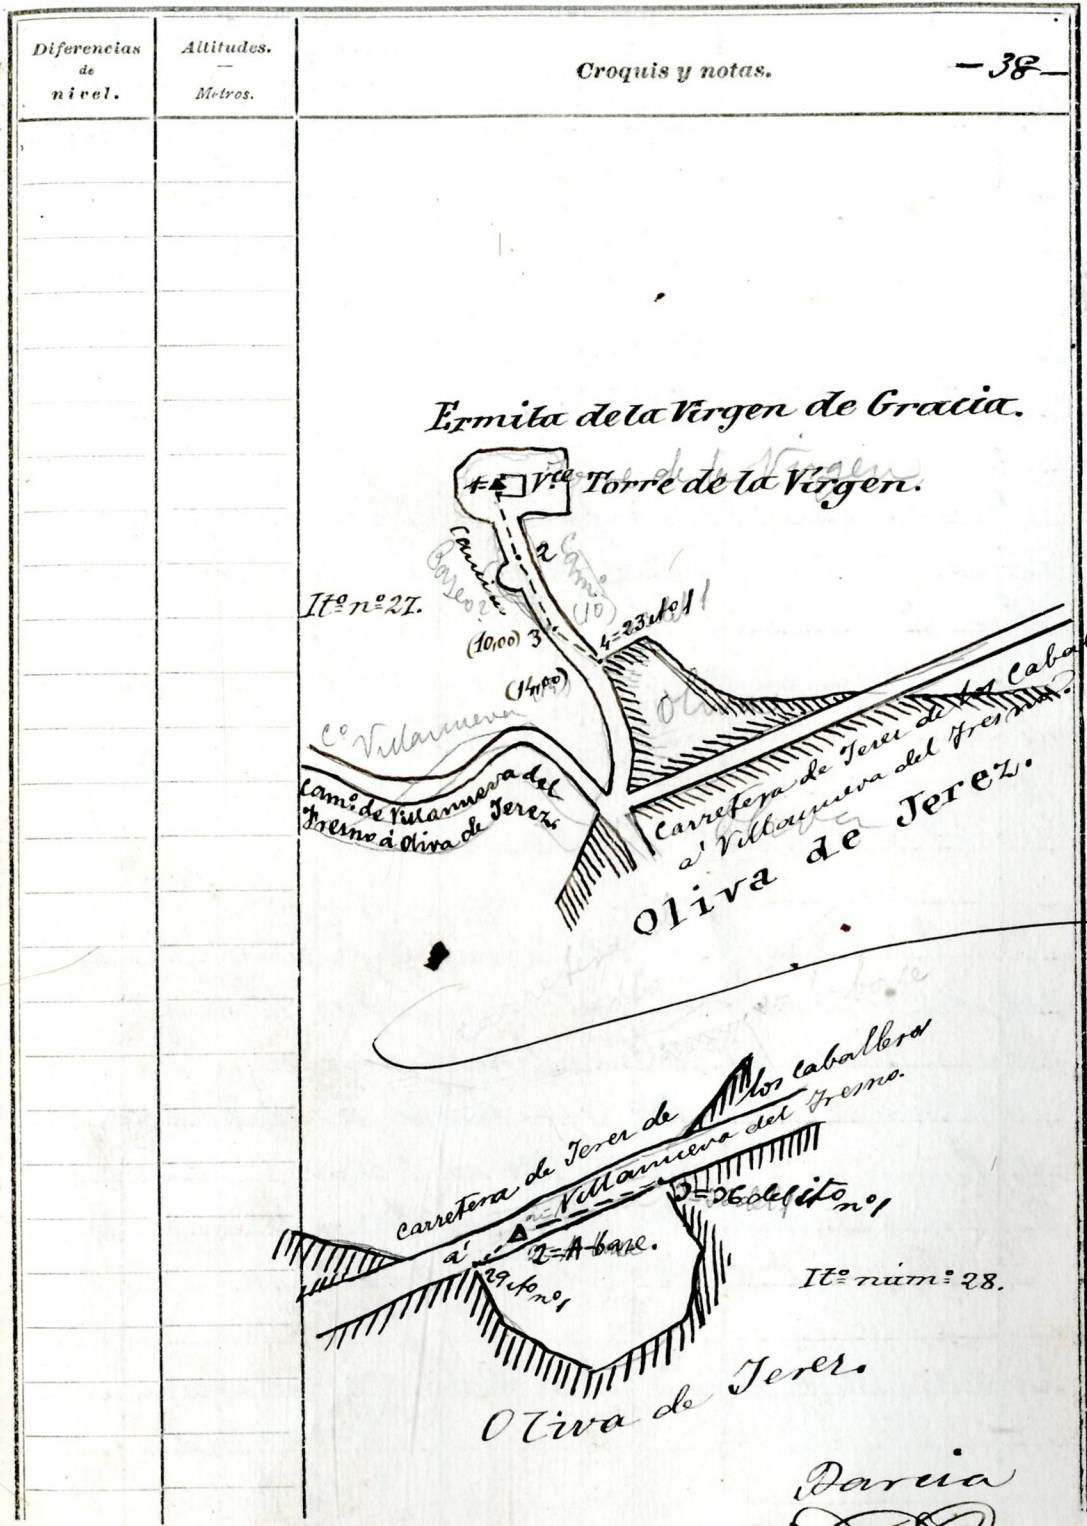 Diferencias
de
nivel.
Altitudes.
Metros.
Croquis y notas.
-38-
Ermita de la Virgen de Gracia.
1= Vce Torre de la Virgen.
2
Camº
(10)
Itº nº 27.
(10,00) 3
4=23 itº 1
(14,00)
Cº Villanueva
Camº de Villanueva del
Fresno á Oliva de Jerez.
Carretera de Jerez de los Caba
á Villanueva del Fresno.
Oliva de Jerez.
Carretera de Jerez de los Caballeros
á Villanueva del Fresno.
3=26 del itº nº 1
2=A base.
29 itº nº 1
Itº núm. 28.
Oliva de Jerez.